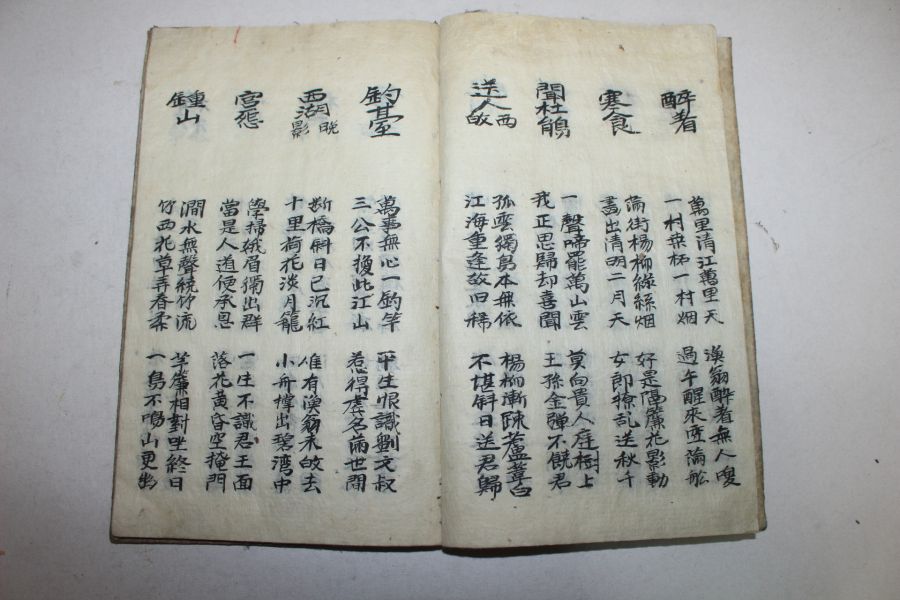 醉着
萬里清江萬里天
一村桑柘一村烟
漁翁醉着無人喚
過午醒來雪滿舩
寒食
滿街楊柳綠絲烟
畵出清明二月天
好是隔簾花影動
女郎撩乱送秋千
聞杜鵑
一聲啼罷萬山雲
我正思歸却喜聞
莫向貴人庭樹上
王孫金彈不饒君
送人西皈
孤雲獨鳥本無依
江海重逢故旧稀
楊柳漸踈蘆葦白
不堪斜日送君歸
釣臺
萬事無心一釣竿
三公不換此江山
平生恨識劉文叔
惹得虛名滿世間
西湖晩影
斷橋斜日已沉紅
十里荷花淡月籠
唯有漁翁未皈去
小舟撑出碧灣中
宮怨
學掃蛾眉獨出群
當是人道便承恩
一生不識君王面
落花黃昏空掩門
鍾山
澗水無聲繞竹流
竹西花草弄春柔
茅簷相對坐終日
一鳥不鳴山更幽